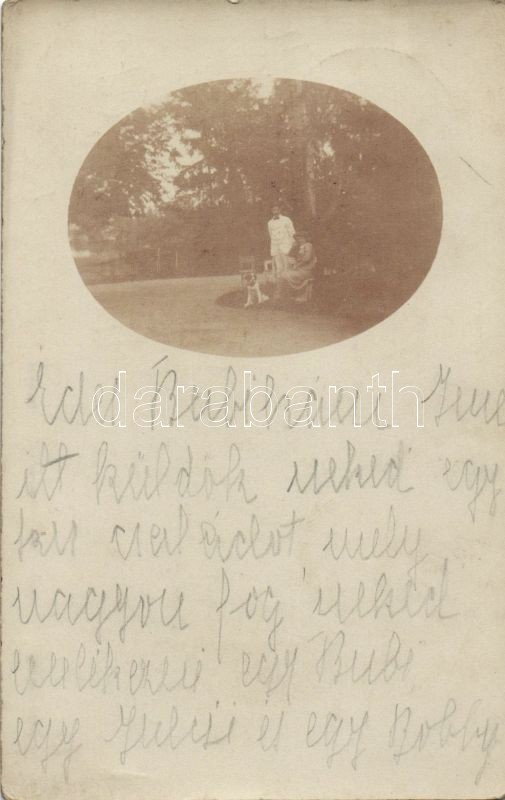 Édes Bubikám Ime
itt küldök neked egy
kis családot mely
nagyon fog neked
egy Bubi
egy Julcsi és egy Bobby
darabanth